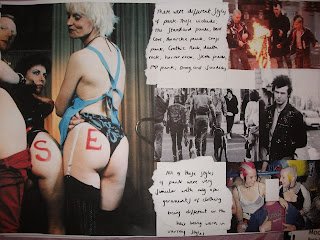 There were different styles
of punk. These include,
the standard punk, hard
core, Anarcho punk, crust
punk, Gothic Rock, death
rock, horror rock, skate punk,
pop punk, Emo, and Streetpunk
S E
All of these styles
of punk were very
similar with only a
garments of clothing
being different or the
hair being worn in
various styles.